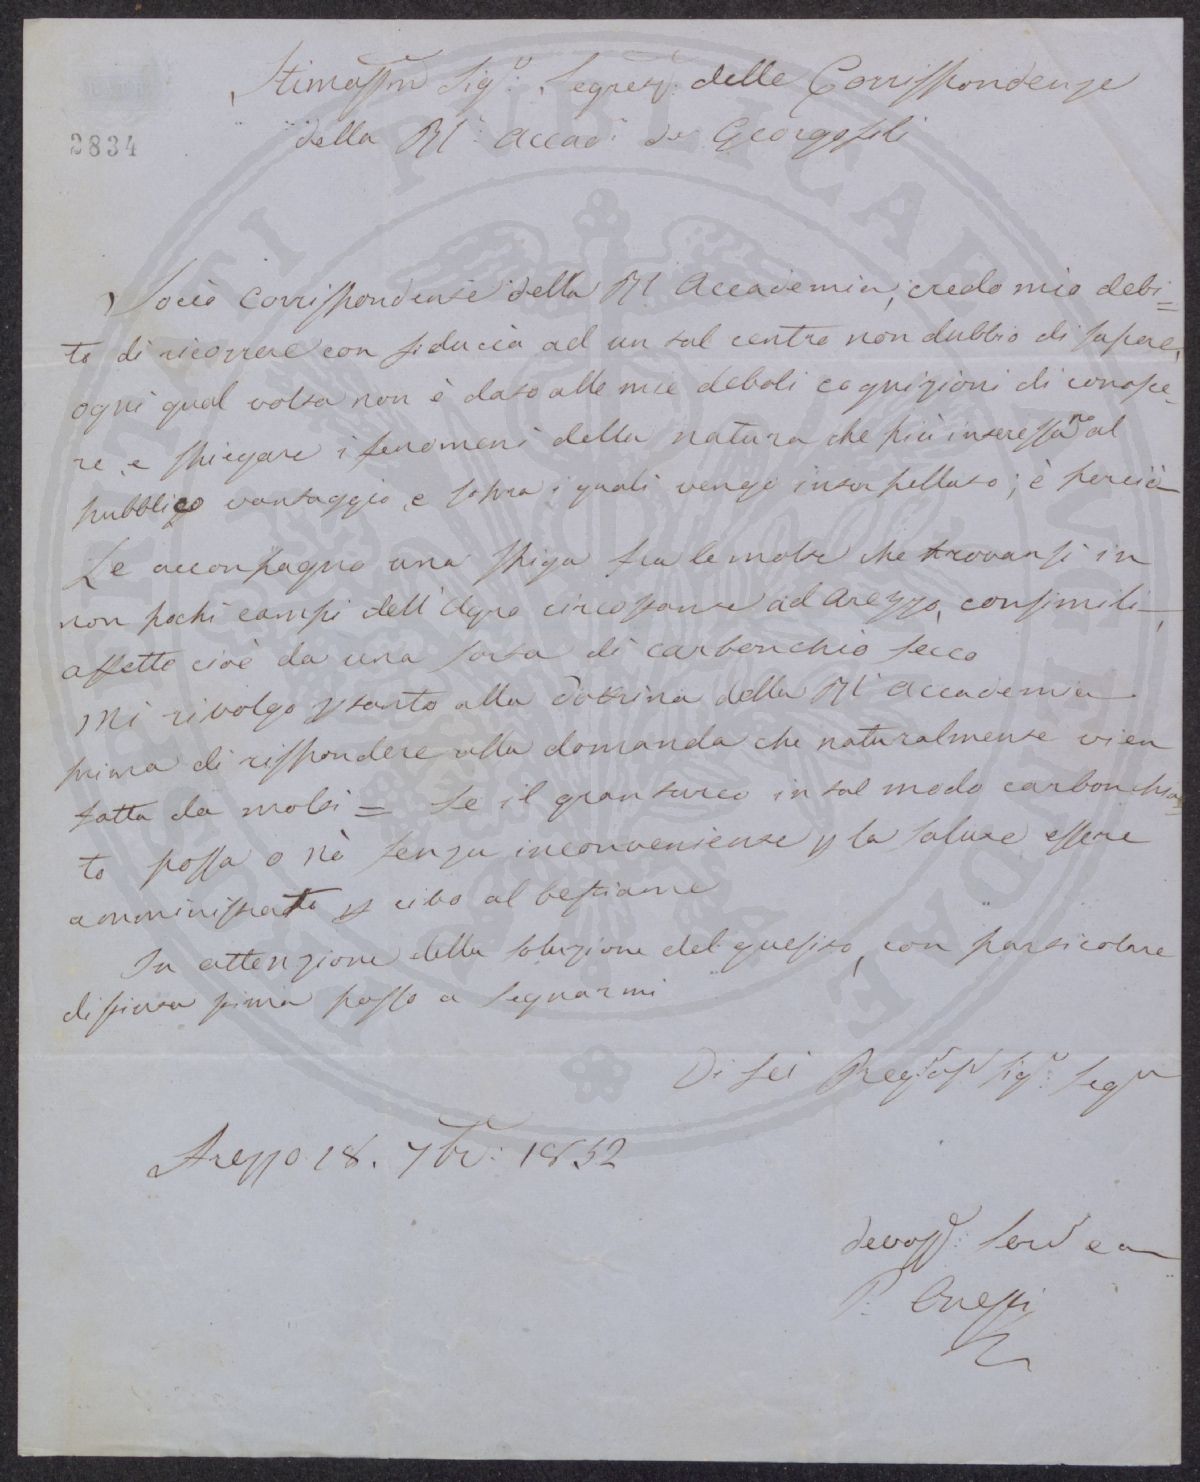 Stimassmo Sigr Segreto delle Corrispondenze
della Rl Accadi dei Georgofili
2834
Socio Corrispondente della Rl Accademia, credo mio debi=
to di ricorrere con fiducia ad un tal centro non dubbio di sapere,
ogni qual volta non è dato alle mie deboli cognizioni di conosce-
re, e spiegare i fenomeni della natura che più interessano al
pubblico vantaggio, e sopra i quali vengo interpellato; è perciò
Le accompagno una spiga fra le molte che trovansi in
non pochi campi dell'Agro circostante ad Arezzo, consimili,
affette cioè da una sorta di carbonchio secco
Mi rivolgo pertanto alla dottrina della Rl Accademia
prima di rispondere alla domanda che naturalmente vien
fatta da molti = Se il gran turco in tal modo carbonchia=
to possa o nò senza inconveniente p la salute essere
amministrato p cibo al bestiame
In attenzione della soluzione del quesito, con particolare
distinta stima passo a segnarmi
Di Lei Sigr Segr
Arezzo 18. 7br: 1852
Devoss: Serv e
P.